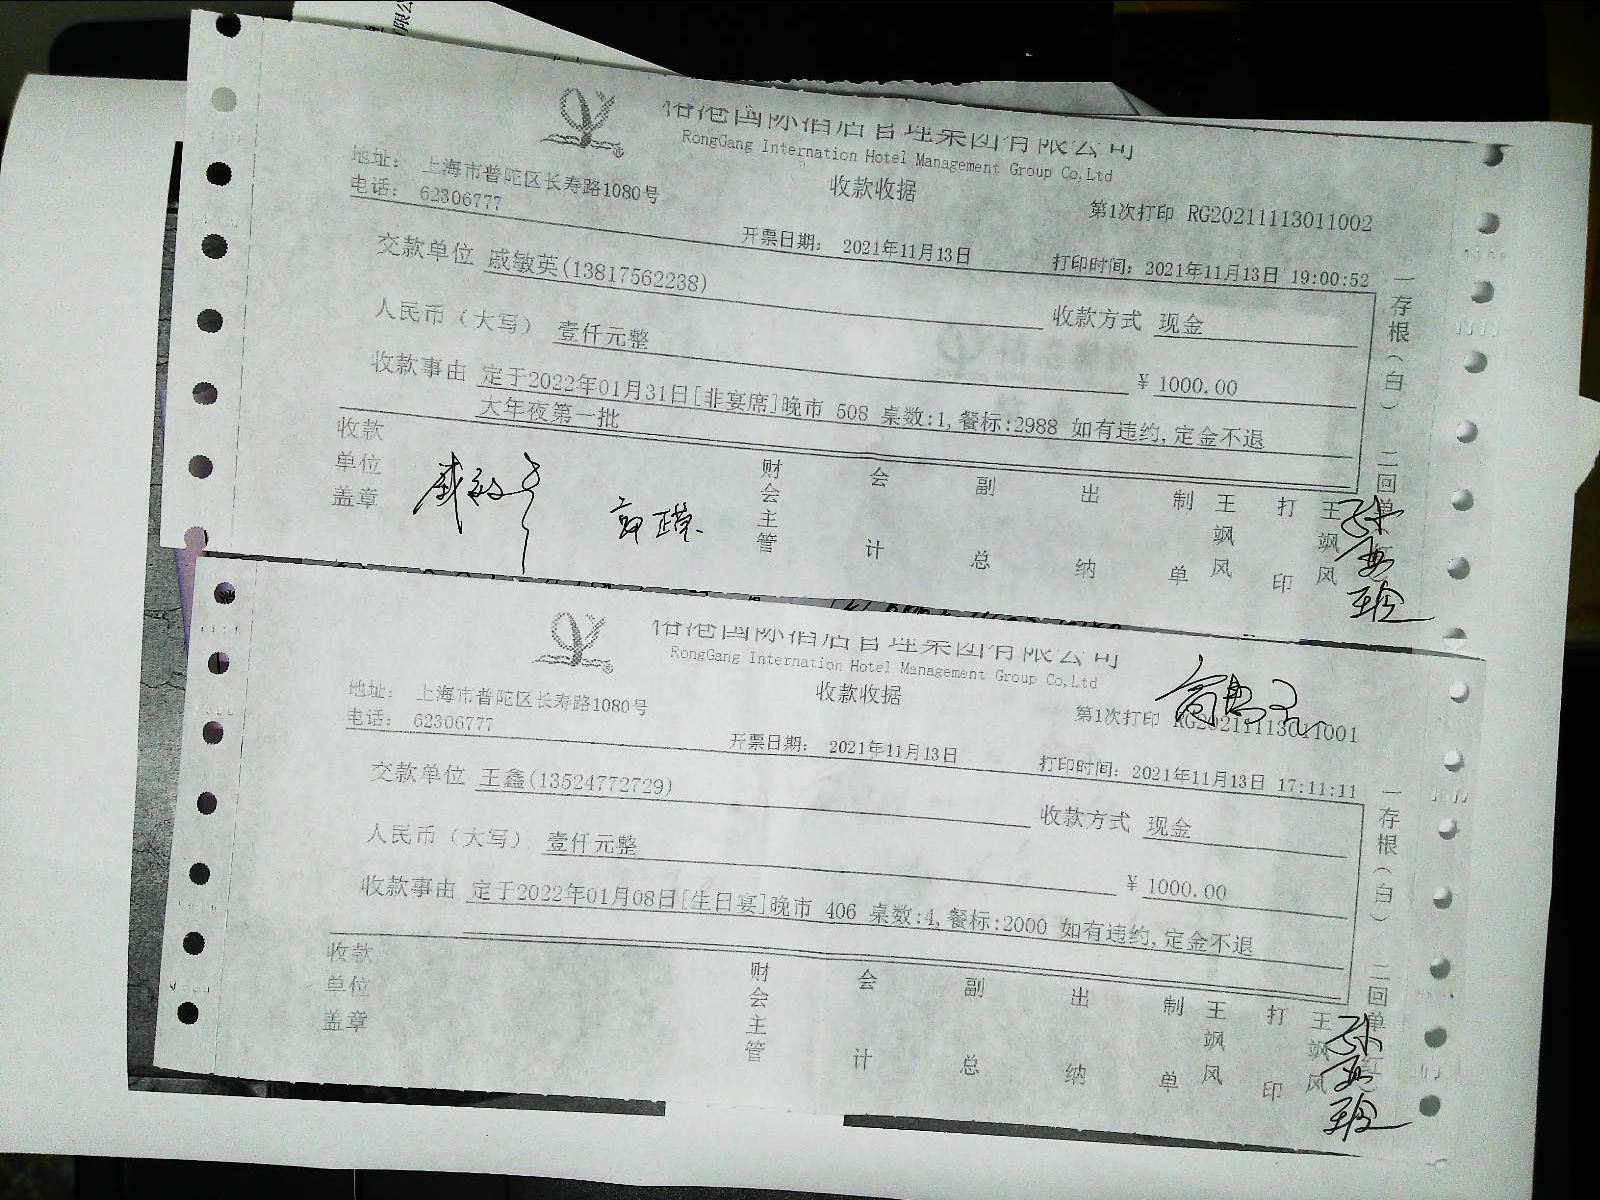 港国际酒店管理集团有限公司
RongGang Internation Hotel Management Group Co,Ltd
地址: 上海市普陀区长寿路1080号
收款收据
电话: 62306777
第1次打印 RG20211113011002
开票日期: 2021年11月13日
打印时间: 2021年11月13日 19:00:52
交款单位 戚敏英(13817562238)
收款方式 现金
人民币(大写) 壹仟元整
¥ 1000.00
收款事由 定于2022年01月31日[非宴席]晚市 508 桌数:1,餐标:2988 如有违约,定金不退
大年夜第一批
收款单位盖章
财会主管
会计
副总
出纳
制单
王飒风
打印
王飒风
一存根(白) 二回单
港国际酒店管理集团有限公司
RongGang Internation Hotel Management Group Co,Ltd
地址: 上海市普陀区长寿路1080号
收款收据
电话: 62306777
第1次打印 RG20211113011001
开票日期: 2021年11月13日
打印时间: 2021年11月13日 17:11:11
交款单位 王鑫(13524772729)
收款方式 现金
人民币(大写) 壹仟元整
¥ 1000.00
收款事由 定于2022年01月08日[生日宴]晚市 406 桌数:4,餐标:2000 如有违约,定金不退
收款单位盖章
财会主管
会计
副总
出纳
制单
王飒风
打印
王飒风
一存根(白) 二回单